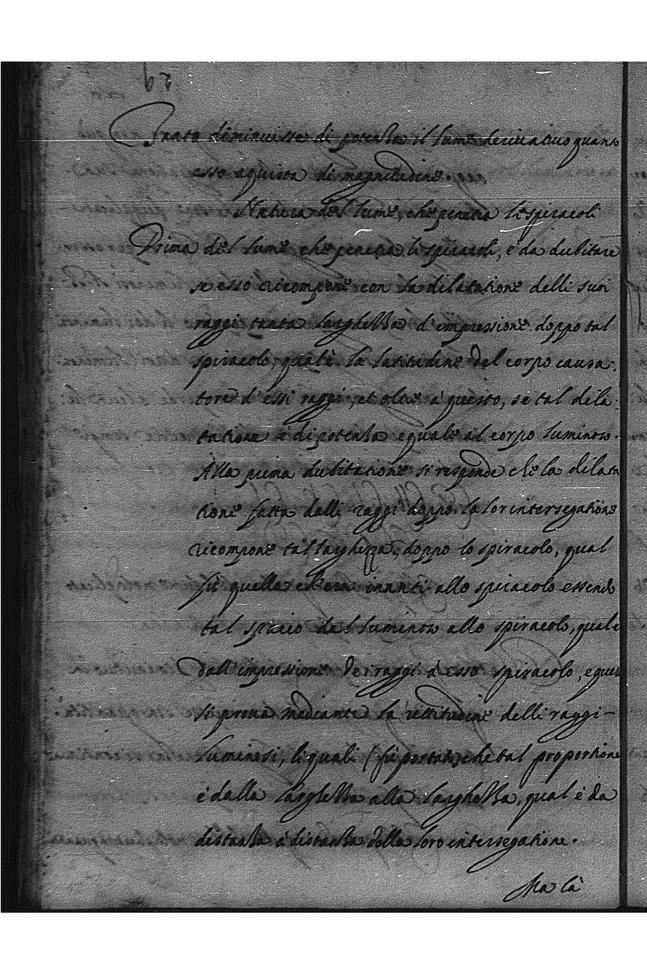 29
Tanto diminuisse di potenza il lume derivativo quanto
esso aquista di magnitudine.
Natura del lume, che penetra li spiracoli
Prima del lume che penetra li spiracoli, è da dubitare
se esso ricompone con la dilatatione delli suoi
raggi tanta larghezza d'impressione doppo tal
spiracolo, qual'è la latitudine del corpo causa-
tore d'essi raggi, et oltre à questo, se tal dila-
tatione è di potenza equale al corpo luminoso.
Alla prima dubitatione si responde che la dilata
tione fatta dalli raggi doppo la lor intersegatione
ricompone tal larghezza doppo lo spiracolo, qual
fù quella che era inanti allo spiracolo essendo
tal spacio dal luminoso allo spiracolo, quale
dall'impressione de i raggi à esso spiracolo, e quest
si prova mediante la rettitudine delli raggi
luminosi, li quali che tal proportione
è dalla larghezza alla larghezza, qual è da
distanza à distanza della loro intersegatione.
Ma la